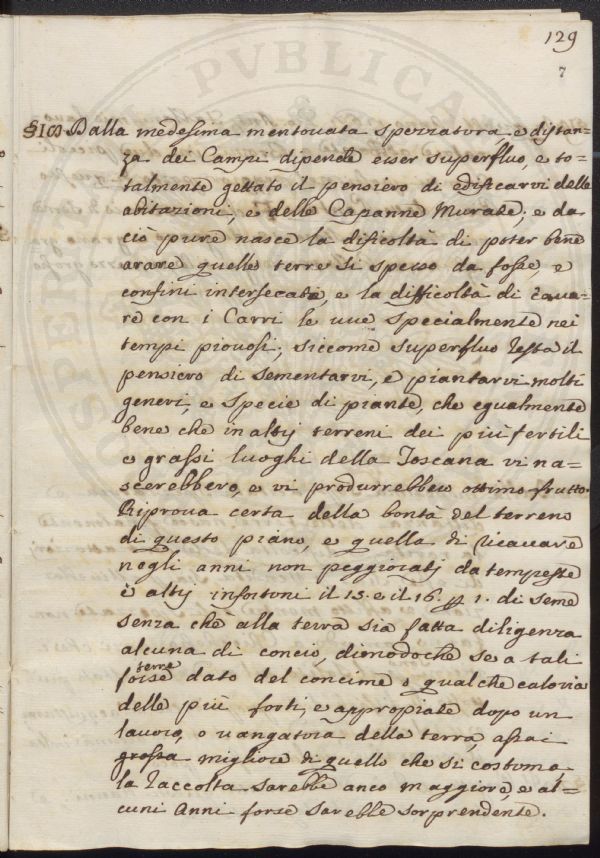 129
7
§100 Dalla medesima mentouata spezzatura, e distan=
za dei Campi dipende esser superfluo, e to=
talmente gettato il pensiero di edificarvi delle
abitazioni, e delle Capanne Murate; e da
ciò pure nasce la dificoltà di poter bene
arare quelle terre si spesso da fosse, e
confini intersecate, e la difficoltà di cava=
re con i Carri le uue specialmente nei
tempi piouosi; siccome superfluo resta il
pensiero di sementarvi, e piantarvi molti
generi, e specie di piante, che egualmente
bene che in altij terreni dei più fertili
e grassi luoghi della Toscana vi na=
scerebbero, e vi produrrebbero ottimo frutto.
Riprova certa della bontà del terreno
di questo piano, e quella di ricavare
negli anni non peggioratij da tempeste
e altij infortoni il 15. e il 16. p 1. di seme
senza che alla terra sia fatta diligenza
alcuna di concio, dimodoche se a tali
terre
forse dato del concime o qualche caloria
delle più forti, e appropiate dopo un
lauoro, o uangatura della terra, assai
grossa migliore di quello che si costuma,
la raccolta sarebbe anco maggiore, e al=
cuni Anni forse sarebbe sorprendente.
PVBLICA